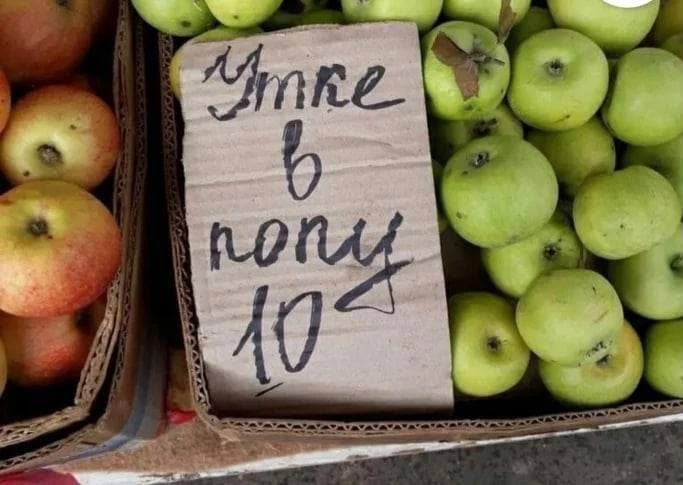 Утке
в
попу
10